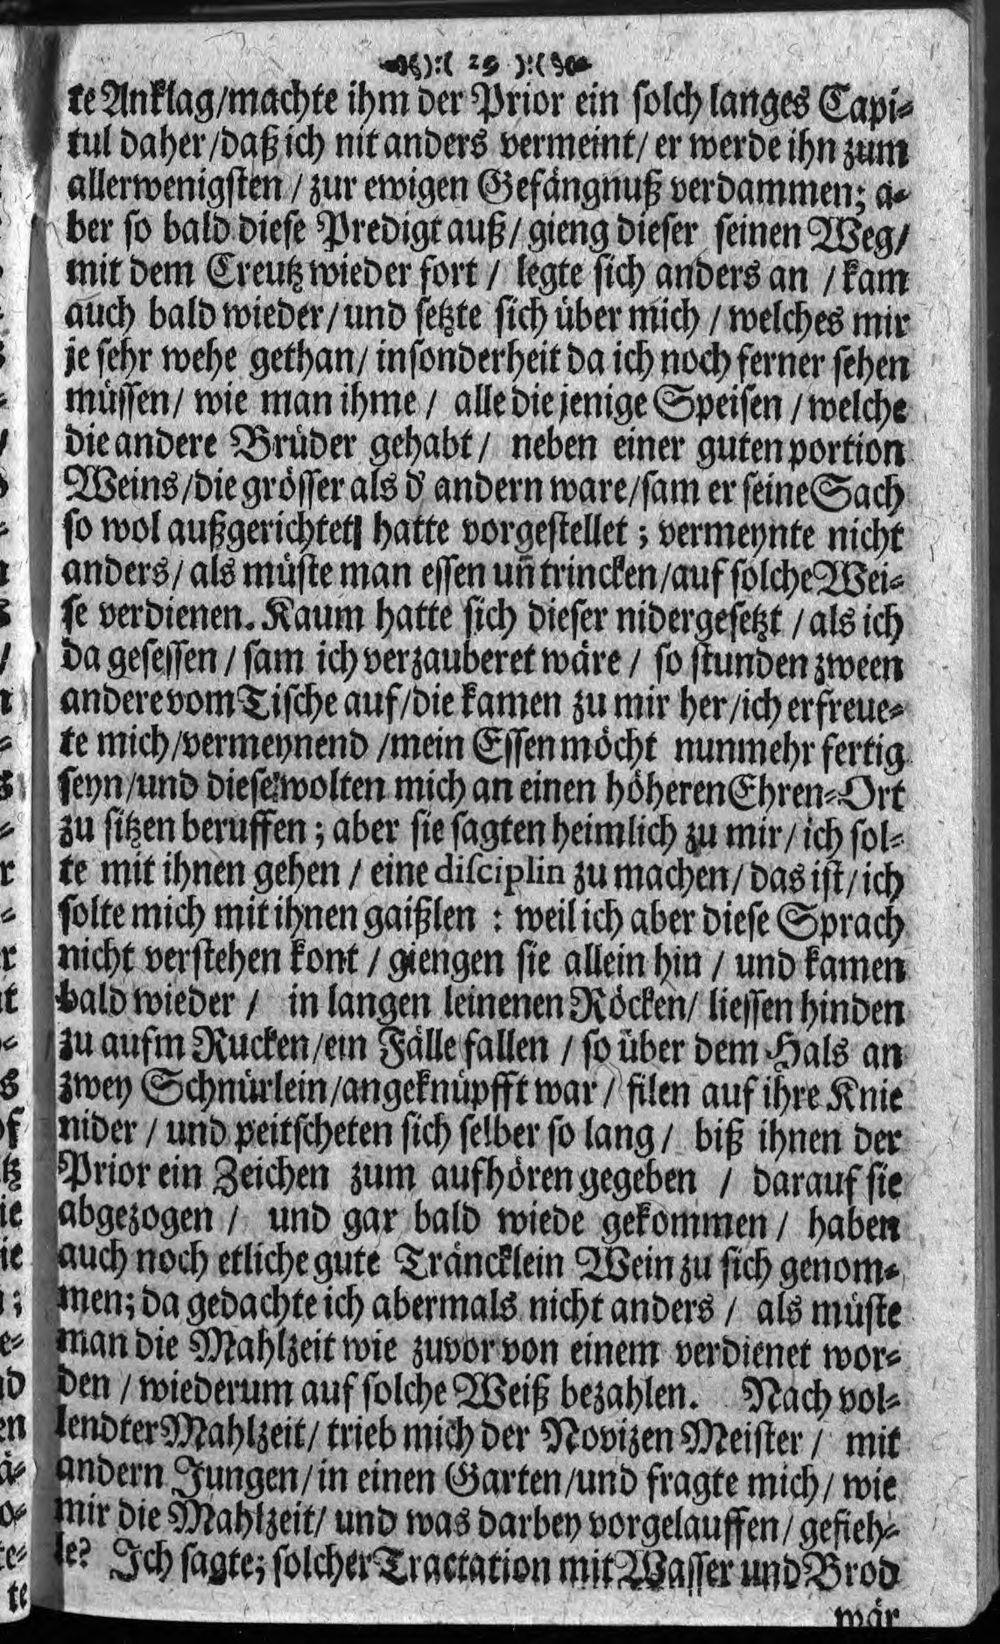 ):( 29 ):(
te Anklag/machte ihm der Prior ein solch langes Capi-
tul daher/daß ich nit anders vermeint/ er werde ihn zum
allerwenigsten / zur ewigen Gefängnuß verdammen; a-
ber so bald diese Predigt auß/ gieng dieser seinen Weg/
mit dem Creutz wieder fort / legte sich anders an / kam
auch bald wieder/und setzte sich über mich / welches mir
je sehr wehe gethan/ insonderheit da ich noch ferner sehen
müssen/ wie man ihme / alle die jenige Speisen / welche
die andere Brüder gehabt/ neben einer guten portion
Weins/die grösser als d' andern ware/sam er seine Sach
so wol außgerichtet| hatte vorgestellet ; vermeynte nicht
anders/ als müste man essen uñ trincken/auf solche Wei-
se verdienen. Kaum hatte sich dieser nidergesetzt / als ich
da gesessen / sam ich verzauberet wäre / so stunden zween
andere vom Tische auf/die kamen zu mir her/ich erfreue-
te mich/vermeynend /mein Essen möcht nunmehr fertig
seyn/und diese wolten mich an einen höheren Ehren-Ort
zu sitzen beruffen ; aber sie sagten heimlich zu mir/ ich sol-
te mit ihnen gehen / eine disciplin zu machen/ das ist/ ich
solte mich mit ihnen gaißlen : weil ich aber diese Sprach
nicht verstehen kont / giengen sie allein hin / und kamen
bald wieder / in langen leinenen Röcken/ liessen hinden
zu aufm Rucken/ein Fälle fallen / so über dem Hals an
zwey Schnürlein/angeknüpfft war / filen auf ihre Knie
nider / und peitscheten sich selber so lang / biß ihnen der
Prior ein Zeichen zum aufhören gegeben / darauf sie
abgezogen / und gar bald wiede gekommen / haben
auch noch etliche gute Träncklein Wein zu sich genom-
men; da gedachte ich abermals nicht anders / als müste
man die Mahlzeit wie zuvor von einem verdienet wor-
den / wiederum auf solche Weiß bezahlen. Nach vol-
lendter Mahlzeit/ trieb mich der Novizen Meister / mit
andern Jungen/in einen Garten/und fragte mich/ wie
mir die Mahlzeit/ und was darbey vorgelauffen/ gefieh-
le? Ich sagte; solcher Tractation mit Wasser und Brod
wär